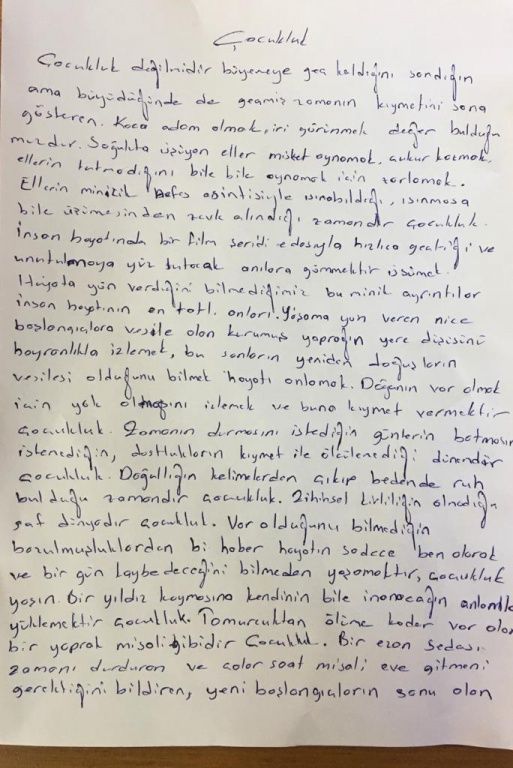 Çocukluk
Çocukluk değilmidir büyümeye geç kaldığını sandığın
ama büyüdüğünde de geçmiş zamanın kıymetini sana
gösteren. Koca adam olmak, iri görünmek değer bulduğu
muzdur. Soğukta üşüyen eller misket oynamak, çukur kazmak,
ellerin tutmadığını bile bile oynamak için zorlamak.
Ellerin minicik nefes esintisiyle ısınabildiği, ısınmasa
bile üşümesinden zevk alındığı zamandır çocukluk.
İnsan hayatında bir film şeridi edasıyla hızlıca geçtiği ve
unutulmaya yüz tutacak anılara gömmektir üşümek.
Hayata yön verdiğini bilmediğimiz bu minik ayrıntılar
insan hayatının en tatlı anları. Yaşama yön veren nice
başlangıçlara vesile olan kurumuş yaprağın yere düşüşünü
hayranlıkla izlemek, bu sonların yeniden doğuşların
vesilesi olduğunu bilmek hayatı anlamak. Doğanın var olmak
için yok olmasını izlemek ve buna kıymet vermektir
çocukluk. Zamanın durmasını istediğin günlerin batmasın
istenediğin, dostlukların kıymet ile ölçülenediği dönendir
çocukluk. Doğallığın kelimelerden çıkıp bedende ruh
bulduğu zamandır çocukluk. Zihinsel kirliliğin olmadığı
saf dünyadır çocukluk. Var olduğunu bilmediğin
bozulmuşluklardan bi haber hayatın sadece ben olarak
ve bir gün kaybedeceğini bilmeden yaşamaktır, çocukluk
yaşın. Bir yıldız kaymasına kendinin bile inanacağın anlamla
yüklemektir çocukluk. Tomurcuktan ölüme kadar var olan
bir yaprak misali gibidir Çocukluk. Bir ezan sedası
zamanı durduran ve çalar saat misali eve gitmeni
gerektiğini bildiren, yeni başlangıçların sonu olan